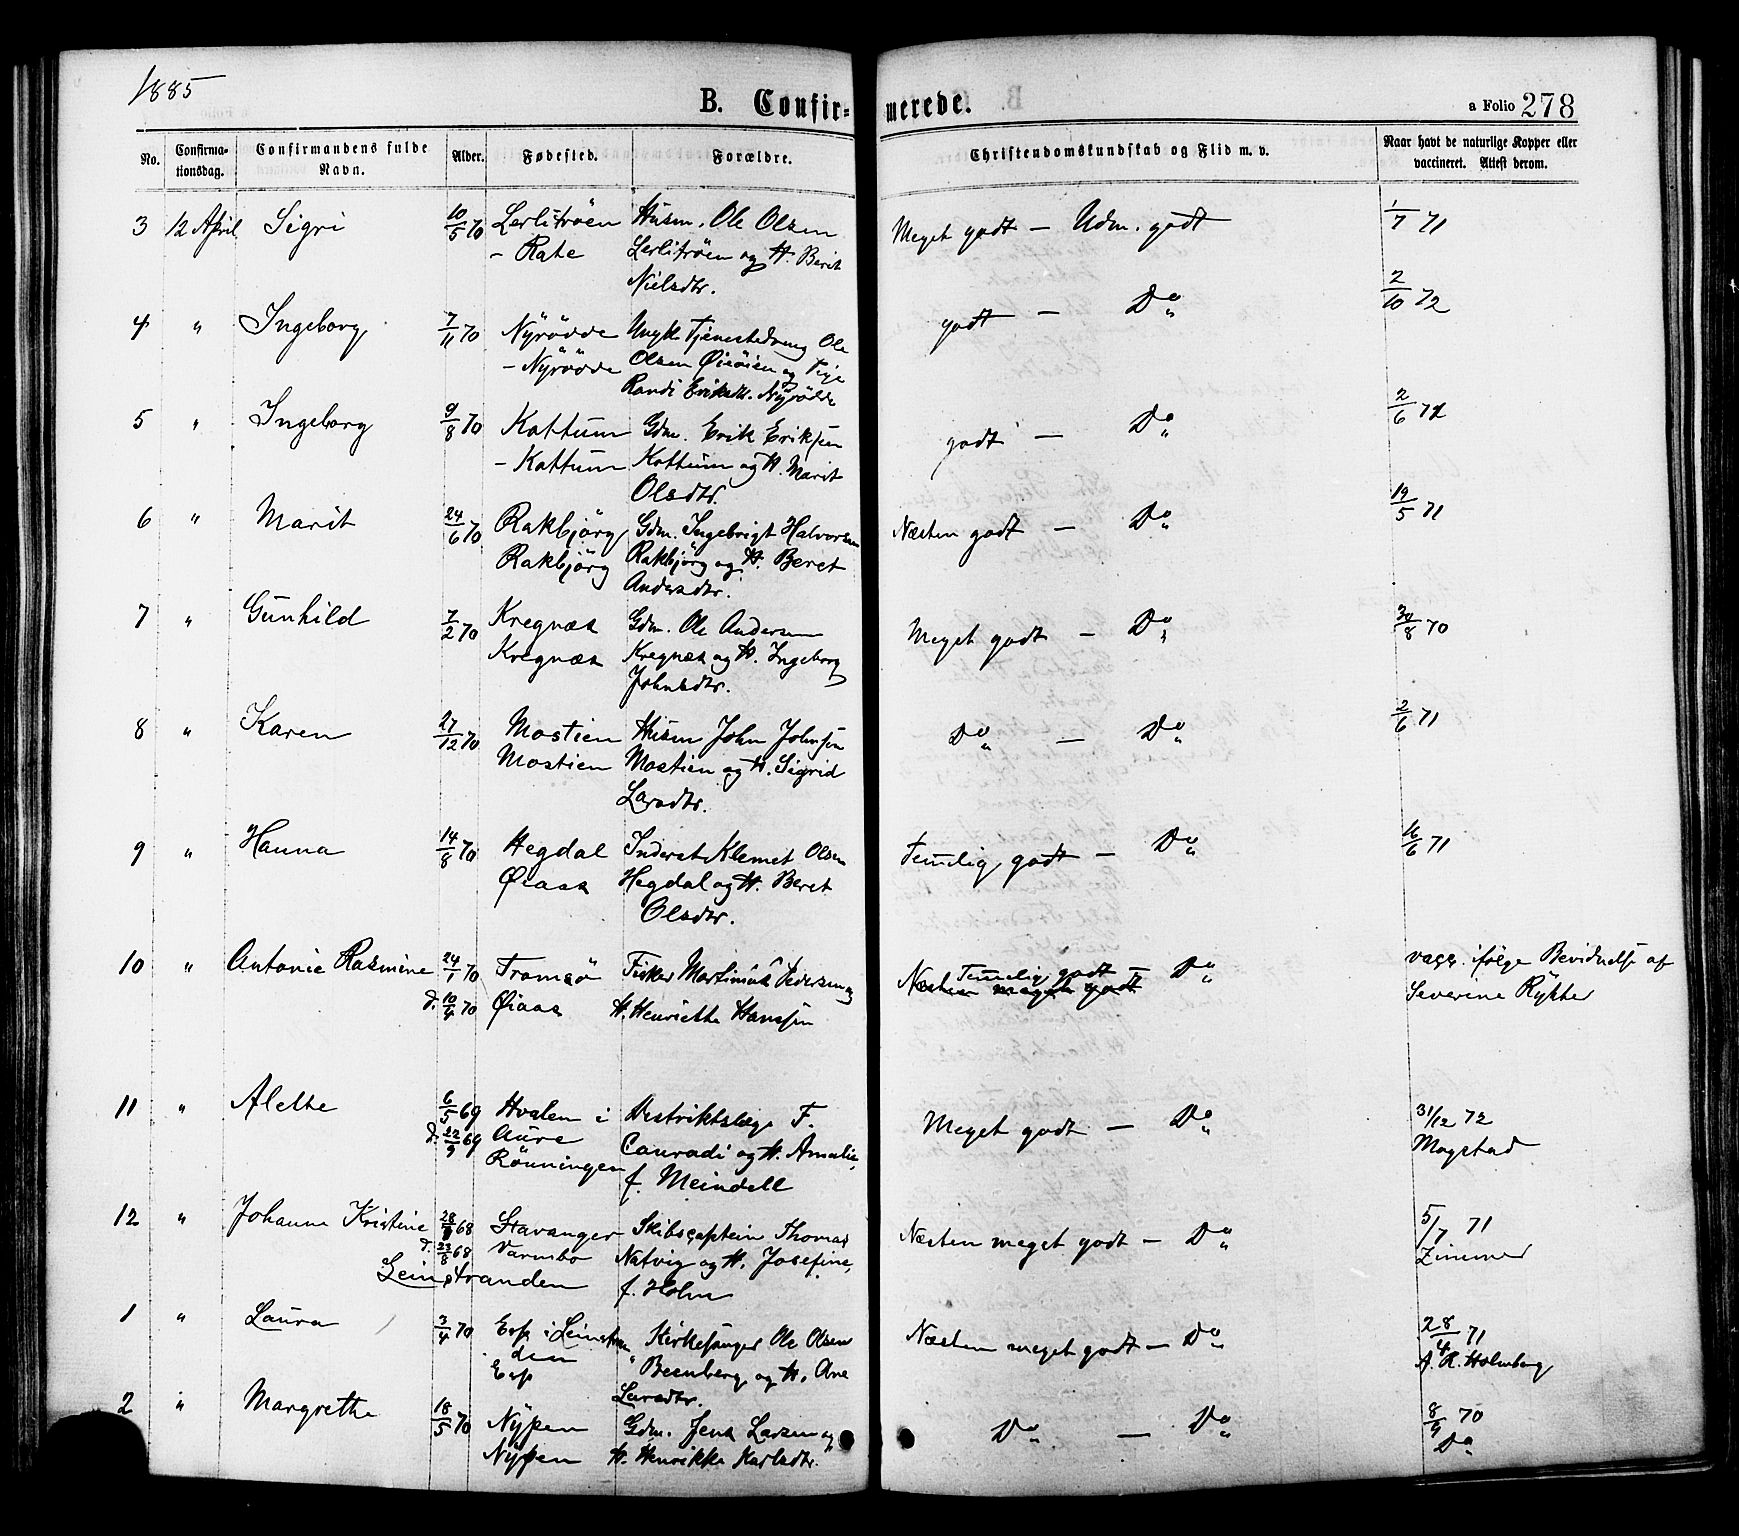 1885
B. Confir-
merede.
a Folio 278
No.
Confirma-
tionsdag.
Confirmandens fulde
Navn.
Alder.
Fødested.
Forældre.
Christendomskundskab og Flid m. v.
Naar havt de naturlige Kopper eller
vaccineret. Attest derom.
3 12 April Sigri 10/5 70 Lerlitrøen Husm. Ole Olsen Meget godt — Udm. godt 1/7 71
– Rate Lerlitrøen og H. Berit
Nielsdtr.
4 " Ingeborg 7/11 70 Nÿrödde Ungk. Tjenestedreng Ole godt — Do 2/10 72
– Nÿrödde Olsen Øiesöien og Pige
Randi Eriksdt. Nÿrödde
5 " Ingeborg 9/8 70 Kattum Gdm. Erik Eriksen godt — Do 2/6 72
– Kattum Kattum og H. Marit
Olsdtr.
6 " Marit 24/6 70 Rakbjörg Gdm. Ingebrigt Halvorsen Næsten godt — Do 19/5 71
Rakbjörg Rakbjörg og H. Beret
Andersdtr.
7 " Gunhild 7/2 70 Kregnæs Gdm. Ole Andersen Meget godt — Do 30/8 70
Kregnæs Kregnæs og H. Ingeborg
Johnsdtr.
8 " Karen 27/12 70 Mostien Husm John Johnsen Do — Do 2/6 71
Mostien Mostien og H. Sigrid
Larsdtr.
9 " Hanna 14/8 70 Hegdal Inderst Klemet Olsen Temlig godt — Do 16/6 71
Øiaas Hegdal og H. Beret
Olsdtr.
10 " Antonie Rasmine 24/1 70 Tromsø Fisker Martinus Pedersen og Temlig godt — Do vacc. ifølge Bevidnelse af
d. 10/4 70 Øiaas H. Henriette Hanssen Næsten meget godt Severine Rÿkke
11 " Alette 6/5 69 Hvalen i Distriktslæge F. Meget godt — Do 31/12 72
d. 22/9 69 Aure Conradi og H. Amalie, Mogstad
Rönningen f. Meindell
12 " Johanne Kristine 28/ 68 Stavanger Skibscaptein Thomas Næsten meget godt — Do 5/7 71
d. 23/8 68 Varmbo Natvig og H. Josefine, Zimmer
f. Holm
Leinstranden
1 " Laura 3/4 70 Esp i Leinstran Kirkesanger Ole Olsen Næsten meget godt — Do 28/4 71
den Beenberg og H. Ane A. R. Holmberg
Esp Larsdtr.
2 " Margrethe 18/5 70 Nÿpen Gdm. Jens Larsen og Do — Do 8/9 70
Nÿpen H. Henrikke Karlsdtr. Do